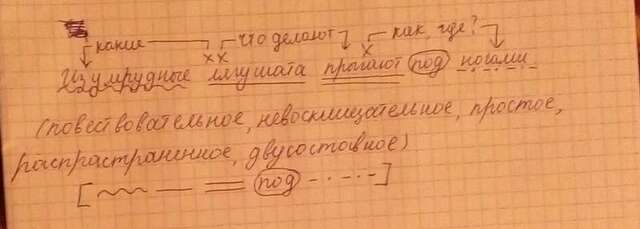 какие что делают как, где?
х хх х
Изумрудные лягушата прыгают под ногами.
(повествовательное, невосклицательное, простое,
распрастраненное, двусоставное)
[ под ]